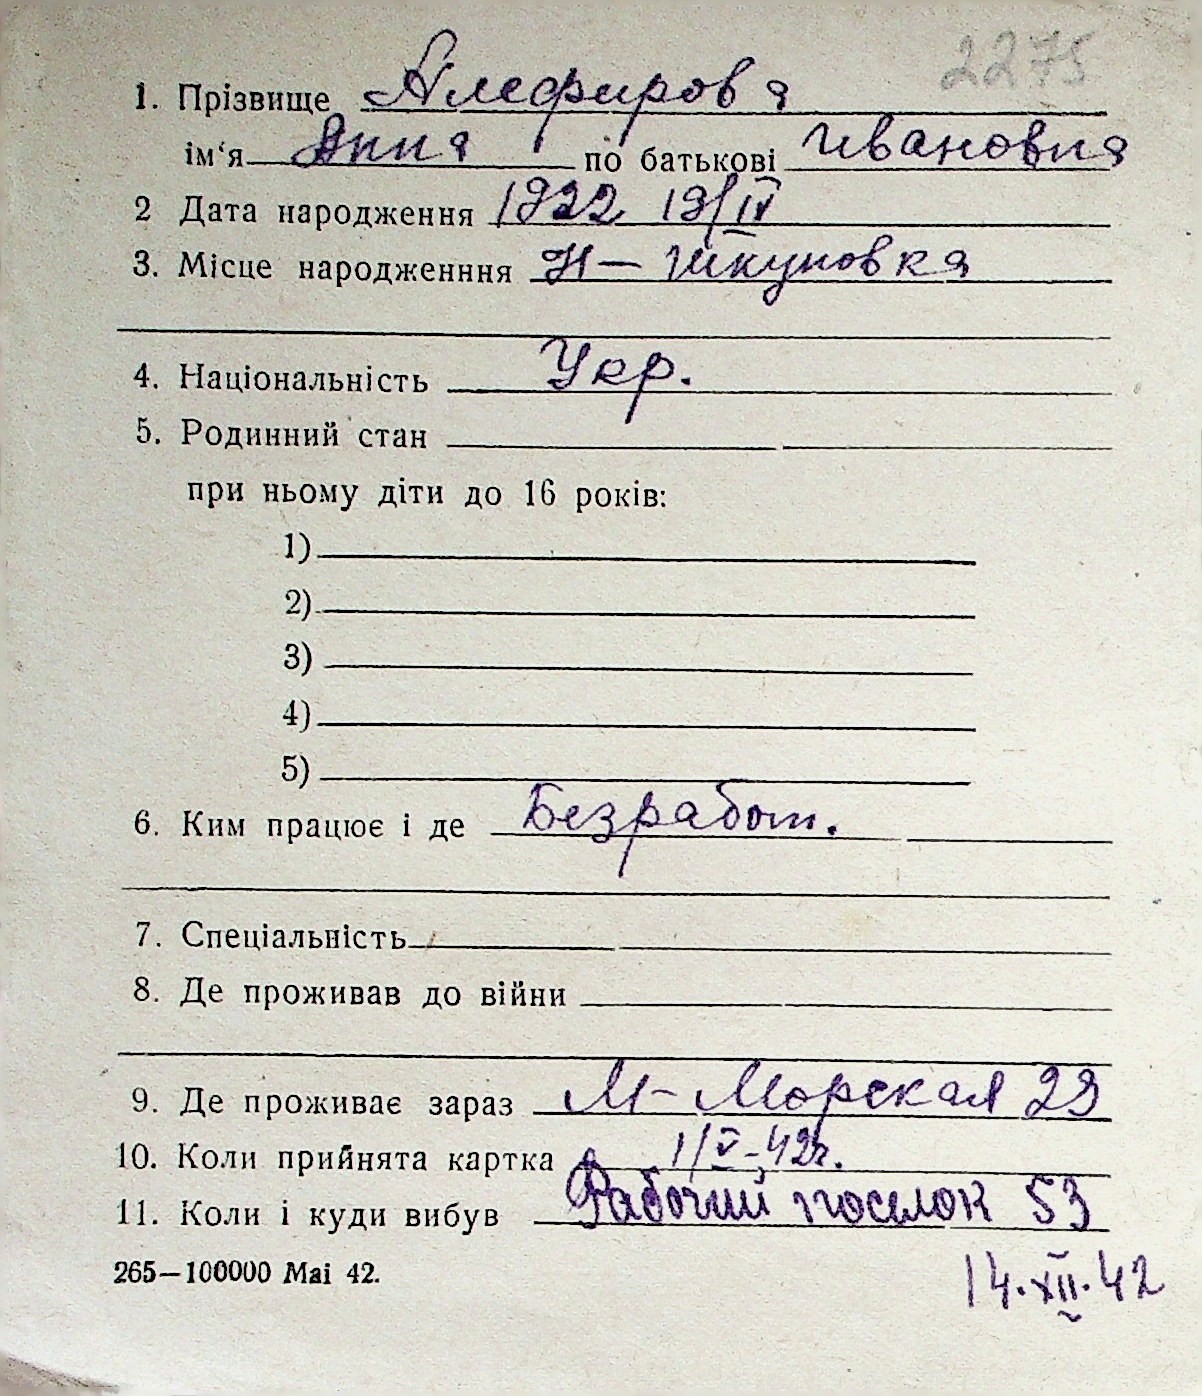 2275
1. Прізвище Алефирова
ім‘я Анна по батькові Ивановна
2 Дата народження 1922 19/IV
3. Місце народженння Н-Шкуновка
4. Національність Укр.
5. Родинний стан
при ньому діти до 16 років:
1)
2)
3)
4)
5)
6. Ким працює і де Безработ.
7. Спеціальність
8. Де проживав до війни
9. Де проживає зараз М-Морская 29
10. Коли прийнята картка 1/V-42г.
11. Коли і куди вибув Рабочий поселок 53
265—100000 Mai 42.
14.XII.42